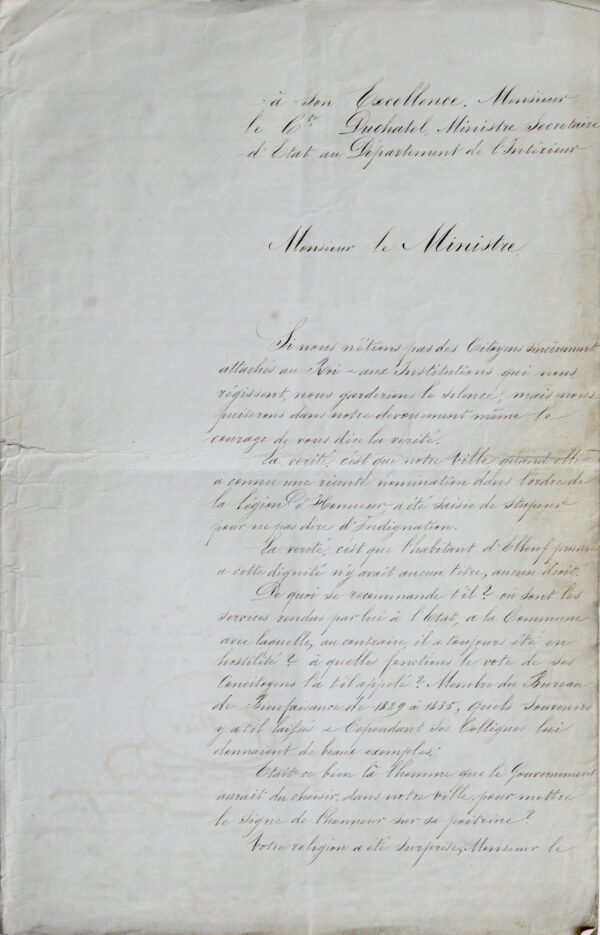 à son Excellence, Monsieur
le Cte Duchatel, Ministre Secretaire
d'Etat au Département de l'Intérieur
Monsieur le Ministre
Si nous n'étions pas des Citoyens sincèrement
attachés au Roi & aux Institutions qui nous
régissent, nous garderions le silence; mais nous
puiserons dans notre dévouement même le
courage de vous dire la verité.
La verité, c'est que notre Ville quand elle
a connu une récente nomination dans l'ordre de
la Légion d'Honneur a été saisie de stupeur
pour ne pas dire d'Indignation.
La verité, c'est que l'habitant d'Elbeuf promu
a cette dignité n'y avait aucun titre, aucun droit.
De quoi se recommande t'il? où sont les
services rendus par lui à l'Etat, a la Commune
avec laquelle, au contraire, il a toujours été en
hostilité? à quelles fonctions le vote de ses
Concitoyens l'a t'il appelé? Membre du Bureau
de Bienfaisance de 1829 à 1835, quels souvenirs
y a t'il laissés & Cependant ses Collègues lui
donnaient de beaux exemples.
Etait-ce bien là l'homme que le Gouvernement
aurait du choisir, dans notre ville, pour mettre
le signe de l'honneur sur sa poitrine?
Votre religion a été surprise, Monsieur le